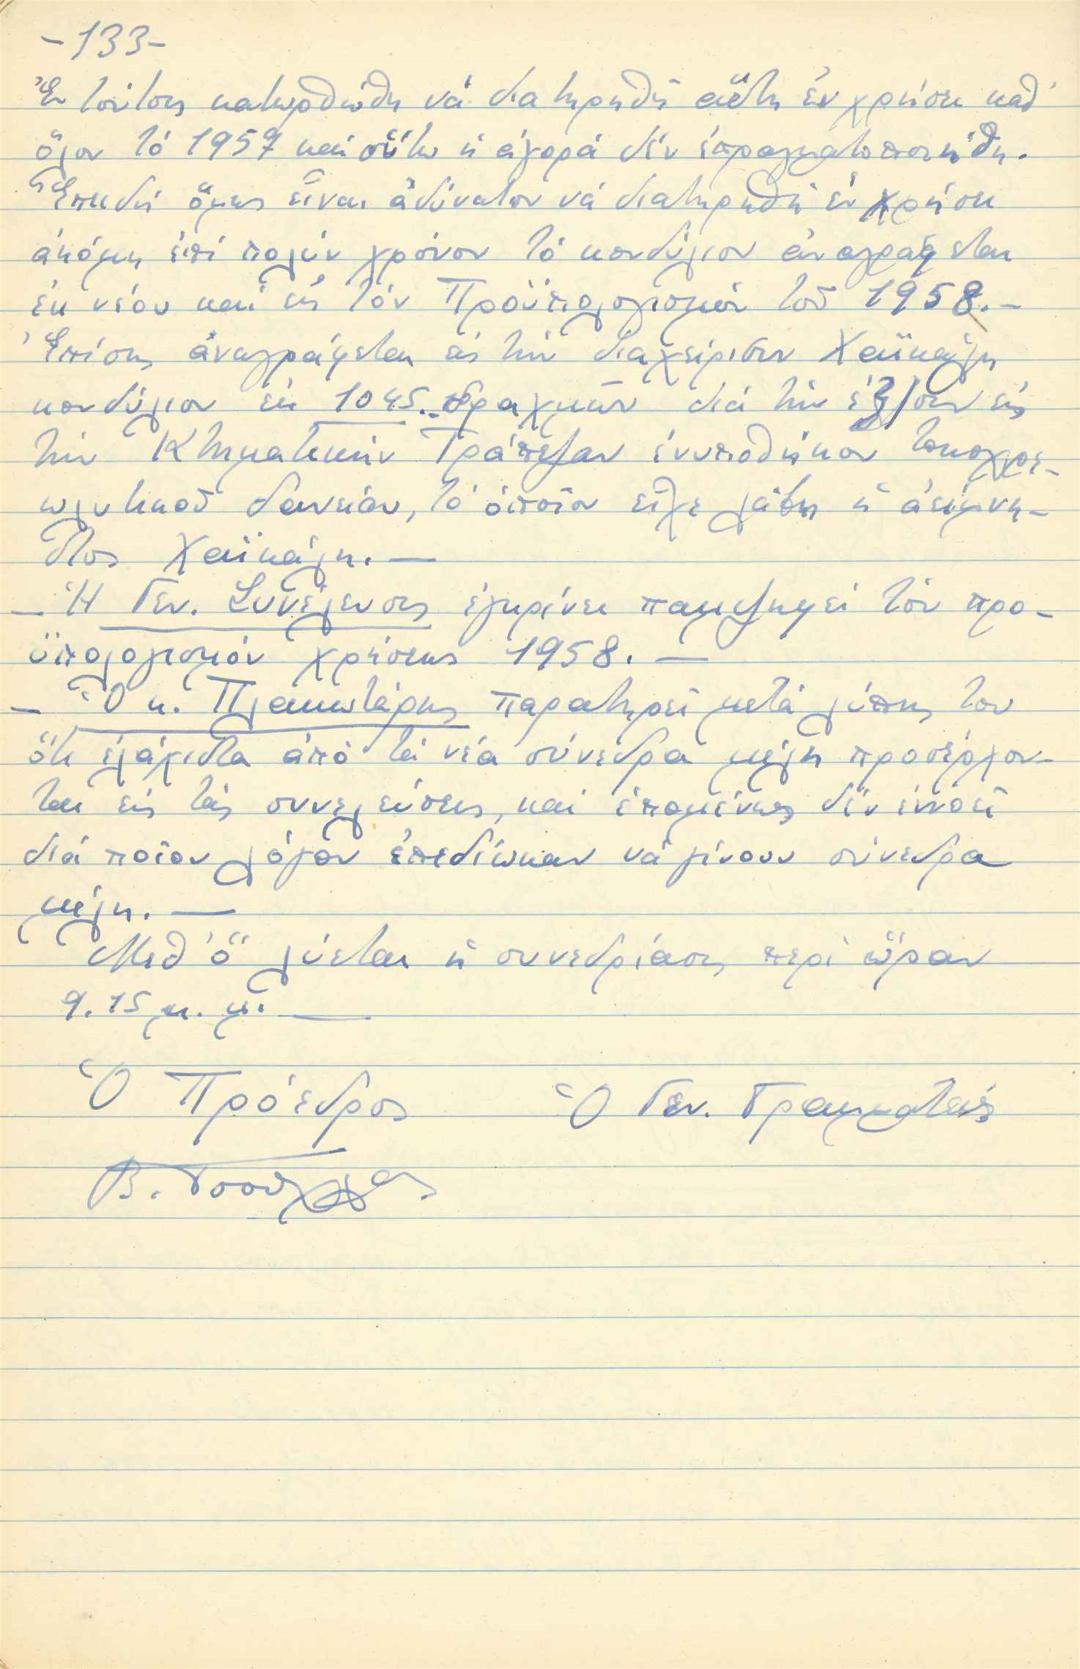 -133-
Ἐν τούτοις κατωρθώθη νά διατηρηθῇ αὕτη ἐν χρήσει καθ'
ὅλον τό 1957 καί οὕτω ἡ ἀγορά δέν ἐπραγματοποιήθη.
Ἐπειδή ὅμως εἶναι ἀδύνατον νά διατηρηθῇ ἐν χρήσει
ἀκόμη ἐπί πολύν χρόνον τό κονδύλιον ἀναγράφεται
ἐκ νέου καί εἰς τόν Προϋπολογισμόν τοῦ 1958.-
Ἐπίσης ἀναγράφεται εἰς τήν διαχείρισιν Χαϊκάλη
κονδύλιον ἐκ 1045.- δραχμῶν διά τήν ἐξ/σιν εἰς
τήν Κτηματικήν Τράπεζαν ἐνυποθήκου τοκοχρε-
ωλυτικοῦ δανείου, τό ὁποῖον εἶχε λάβῃ ἡ ἀείμνη-
στος Χαϊκάλη. —
- Ἡ Γεν. Συνέλευσις ἐγκρίνει παμψηφεί τόν προ-
ϋπολογισμόν χρήσεως 1958. —
- Ὁ κ. Πλακωτάρης παρατηρεῖ μετά λύπης του
ὅτι ἐλάχιστα ἀπό τά νέα σύνεδρα μέλη προσέρχον-
ται εἰς τάς συνελεύσεις, καί ἑπομένως δέν ἐννοεῖ
διά ποῖον λόγον ἐπεδίωκαν νά γίνουν σύνεδρα
μέλη. —
Μεθ' ὅ λύεται ἡ συνεδρίασις περί ὥραν
9.15 μ. μ. —
Ὁ Πρόεδρος Ὁ Γεν. Γραμματεύς
Β.